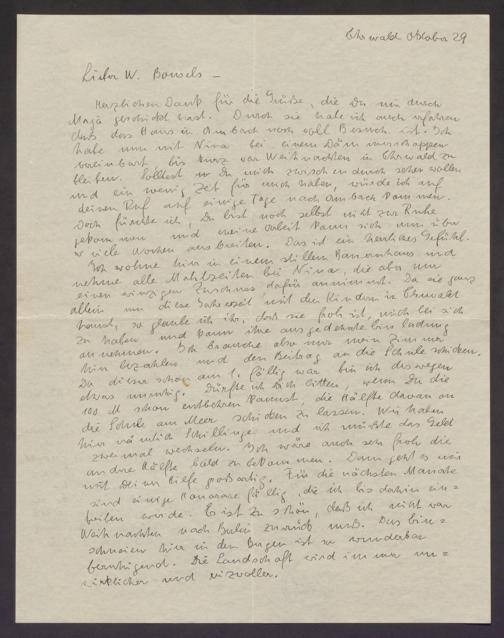 Ehrwald Oktober 29
Lieber W. Bonsels –
Herzlichen Dank für die Grüße, die Du mir durch
Maja geschickt hast. Durch sie habe ich auch erfahren
daß das Haus in Ambach noch voll Besuch ist. Ich
habe nun mit Nina bei einem
vereinbart bis kurz vor Weihnachten in Ehrwald zu
bleiben. Solltest Du mich zwischendurch sehen wollen
und ein wenig Zeit für mich haben, würde ich auf
deinen Ruf auf einige Tage nach Ambach kommen.
Doch fürchte ich, Du bist noch selbst nicht zur Ruhe
gekommen und meine Arbeit kann sich nun über
so viele Wochen ausbreiten. Das ist ein Gefühl.
Ich wohne hier in einem stillen Bauernhaus und
nehme alle Mahlzeiten bei Nina, die aber nur
einen winzigen Zuschuss dafür annimmt. Da sie ganz
allein um diese Jahreszeit mit den Kindern in Ehrwald
haust, so glaube ich ihr, daß sie froh ist, mich bei sich
zu haben und kann ihre ausgedehnte Einladung
annehmen. Ich brauche also nur mein Zimmer
hier bezahlen und den Beitrag an die Schule schicken.
Da dieser schon am 1. fällig war bin ich deswegen
etwas unruhig. Dürfte ich Dich bitten, wenn Du die
100 M schon entbehren kannst, die Hälfte davon an
die Schule am Meer schicken zu lassen. Wir haben
hier nämlich Schillinge und ich müßte das Geld
zweimal wechseln. Ich wäre auch sehr froh die
andre Hälfte bald zu bekommen. Dann geht es mir
mit Deiner Hilfe großartig. Für die nächsten Monate
sind einige Honorare fällig, die ich bis dahin ein=
teilen werde. Es ist zu schön, daß ich nicht vor
Weihnachten nach Berlin zurück muß. Das Ein=
schneien hier in den Bergen ist so wunderbar
beruhigend. Die Landschaft wird immer un=
wirklicher und reizvoller.